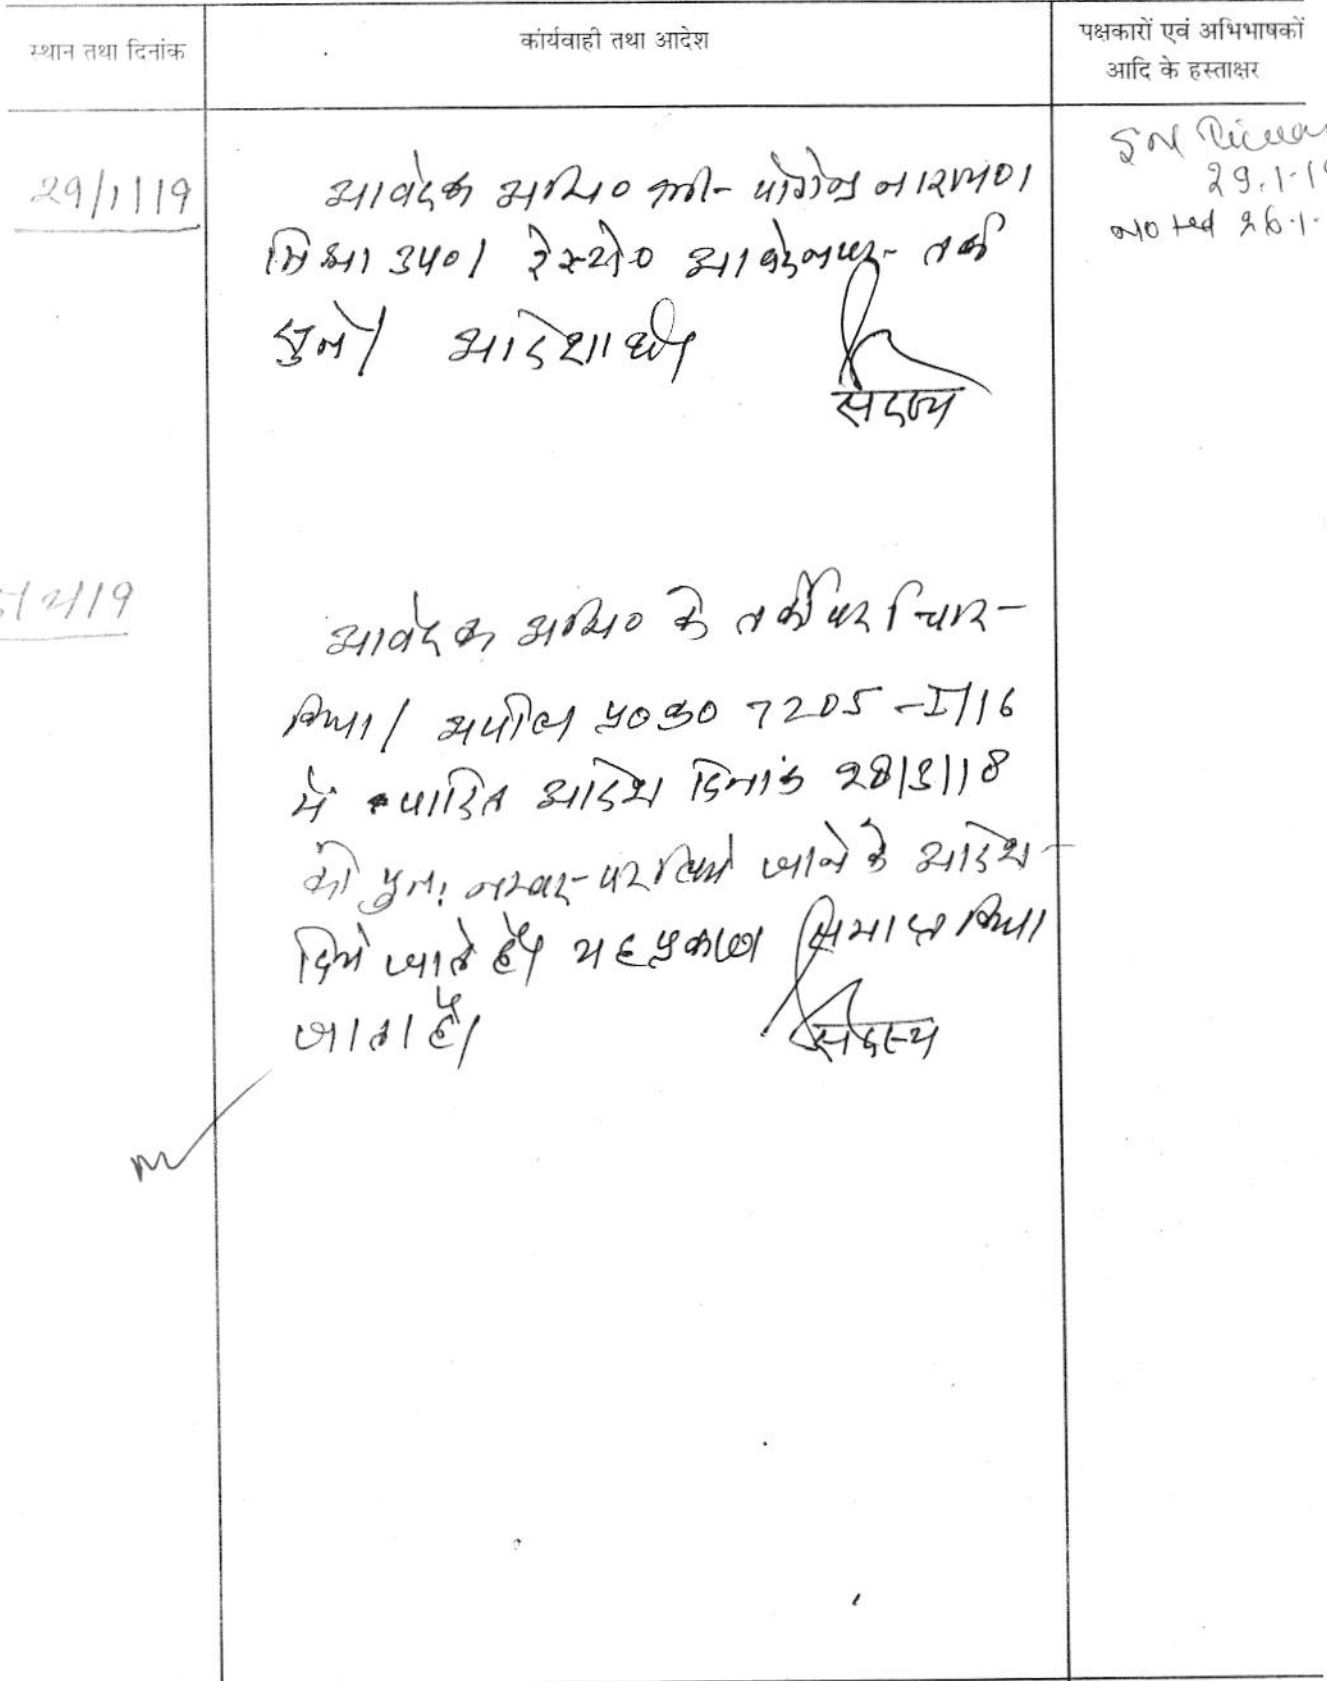 स्थान तथा दिनांक
कार्यवाही तथा आदेश
पक्षकारों एवं अभिभाषकों
आदि के हस्ताक्षर
29/1/19
आवेदक अभि० श्री- योगेन्द्र नारायण
मिश्रा उप०। रेस्टो० आवेदन पर- तर्क
सुने। आदेशार्थ।
सदस्य
29.1.19
noted
2/19
आवेदक अभि० के तर्कों पर विचार-
किया। अपील प्र०क्र० 7205-I/16
में पारित आदेश दिनांक 28/3/18
को पुनः नम्बर- पर लिये जाने के आदेश-
दिये जाते हैं। यह प्रकरण समाप्त किया
जाता है।
सदस्य